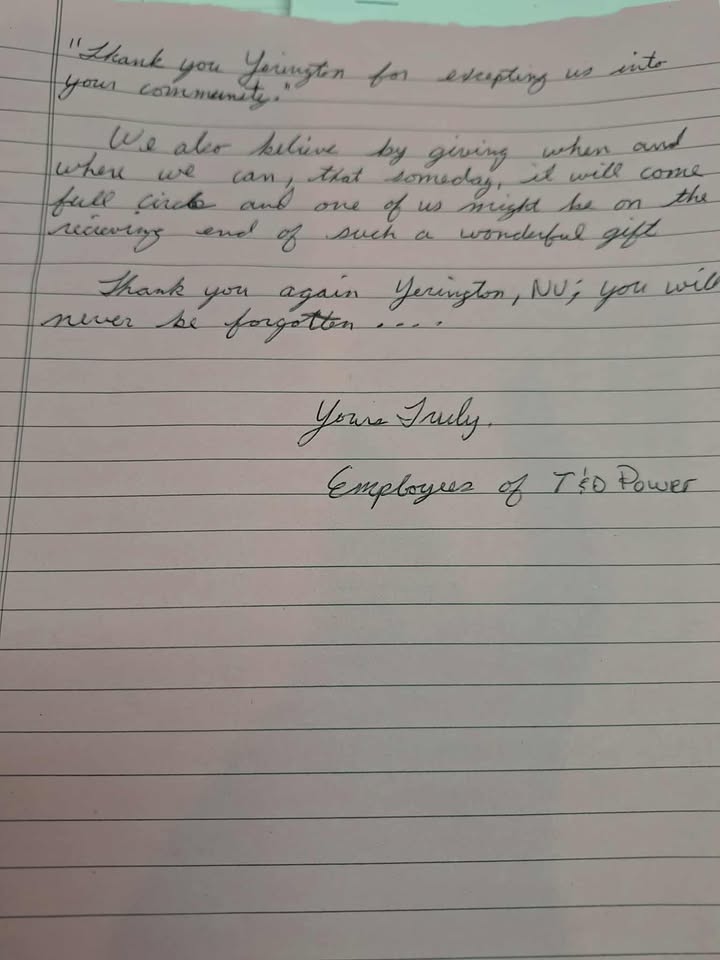 "Thank you Yerington for excepting us into
your community."
We also believe by giving when and
where we can, that someday, it will come
full circle and one of us might be on the
recieving end of such a wonderful gift
Thank you again Yerington, NV; you will
never be forgotten ....
Yours Truly.
Employees of T&D Power